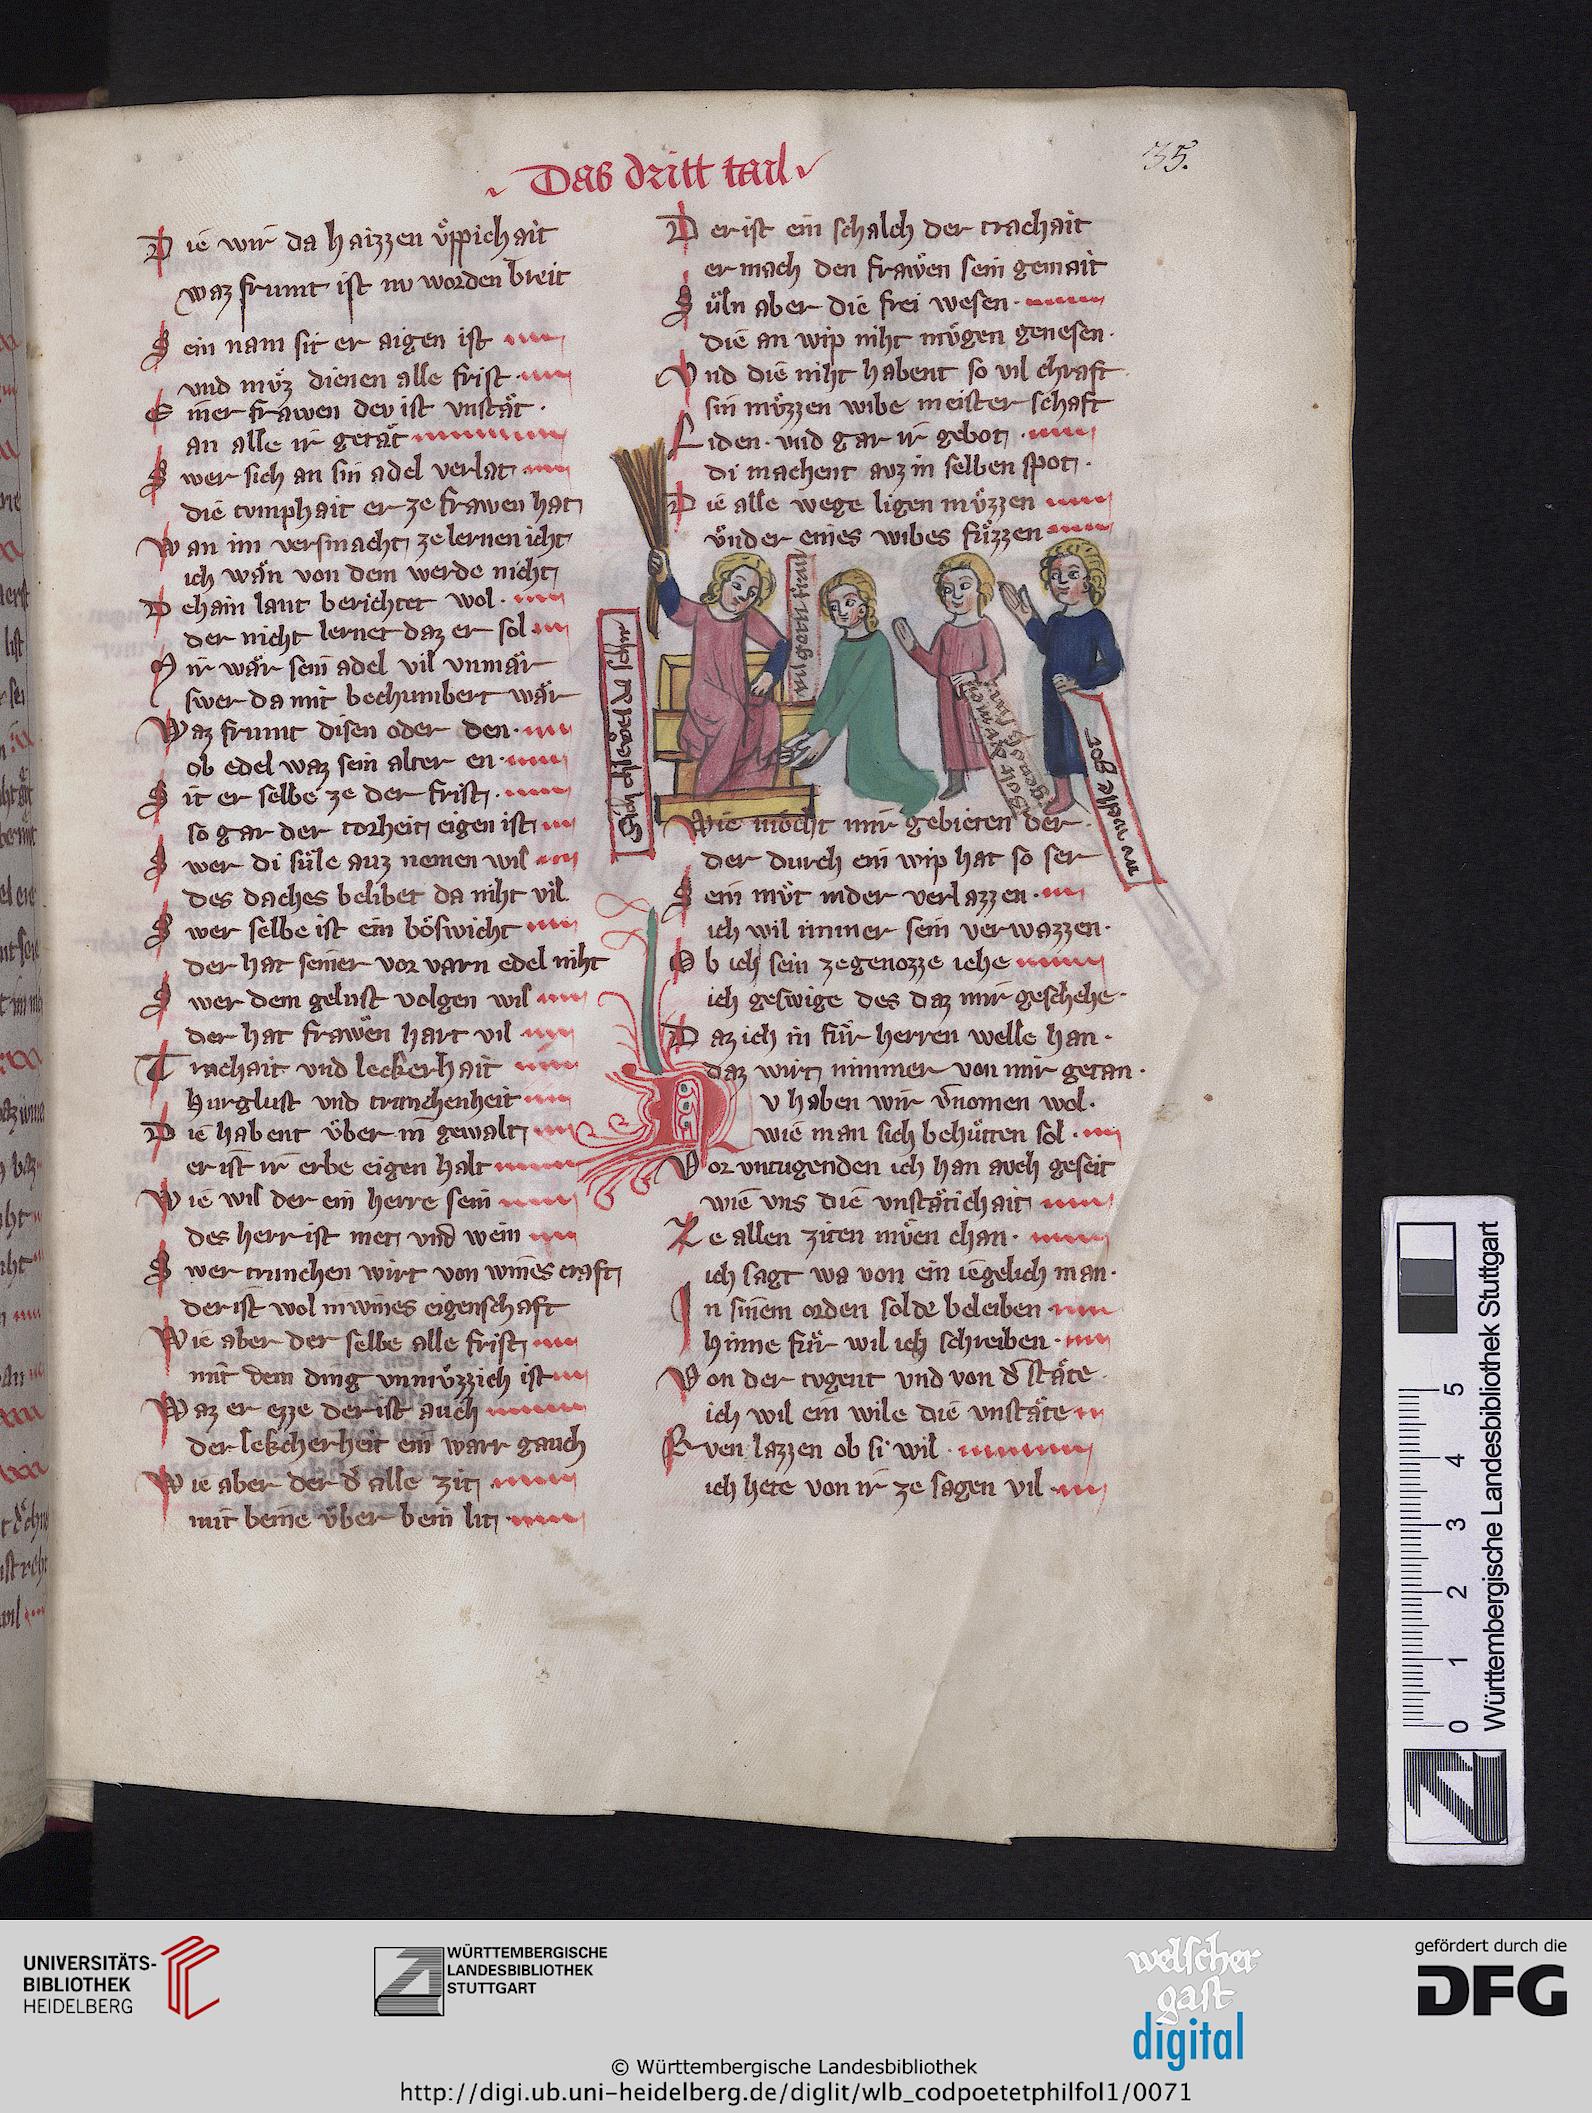 Das dritt tail
35.
Die wir da haizzen üppichait
waz frumt ist nv worden breit
Sein nam sit er aigen ist
vnd müz dienen alle frist
Einer frawen dev ist vnstät
an alle ir getät
Swer sich an sin adel verlat
die tvmphait er ze frawen hat
Wan im versmacht ze lernen icht
ich wän von dem werde nicht
Dehain laut berichtet wol
der nicht lernet daz er sol
Mir wär sein adel vil vnmär
swer da mit bechumbert wär
Waz frumt disen oder den
ob edel waz sein alter en
Sit er selbe ze der frist
so gar der torheit eigen ist
Swer di süle auz nemen wil
des daches belibet da niht vil
Swer selbe ist ein böswicht
der hat seiner vor varn edel niht
Swer dem gelust volgen wil
der hat frawen hart vil
Trachait vnd leckerhait
hurglust vnd trunchenheit
Die habent über in gewalt
er ist ir erbe eigen halt
Wie wil der ein herre sein
des herr ist met vnd wein
Swer trunchen wirt von wines craft
der ist wol in wines eigenschaft
Wie aber der selbe alle frist
mit dem ding vnmüzzich ist
Waz er ezze der ist auch
der lekcherheit ein warr gauch
Wie aber der d̉ alle zit
mit beine über bein lit
Der ist ein schalch der trachait
er mach den frawen sein gemait
Süln aber die frei wesen
die an wip niht mügen genesen
Vnd die niht habent so vil chraft
sin müzzen wibe meisterschaft
Liden vnd gar ir gebot
di machent auz in selben spot
Die alle wege ligen müzzen
vnder eines wibes füzzen
Wie möcht mir gebieten der
der durch ein wip hat so ser
Sein müt nider verlazzen
ich wil immer sein verwazzen
Ob ich sein ze genozze iehe
ich geswige des daz mir geschehe
Daz ich in für herren welle han
daz wirt nimmer von mir getan
Nv haben wir v̄nomen wol
wie man sich behütten sol
Vor vntugenden ich han auch geseit
wie vns die vnstätichait
Ze allen ziten müen chan
ich sagt wa von ein iegelich man
In sinem orden solde beleiben
hinne für wil ich schreiben
Von der tvgent vnd von d̉ stäte
ich wil ein wile die vnstäte
Rven lazzen ob si wil
ich hete von ir ze sagen vil
nv welle got
0 1 2 3 4 5
Württembergische Landesbibliothek Stuttgart
UNIVERSITÄTS-
BIBLIOTHEK
HEIDELBERG
WÜRTTEMBERGISCHE
LANDESBIBLIOTHEK
STUTTGART
welscher
gast
digital
gefördert durch die
DFG
© Württembergische Landesbibliothek
http://digi.ub.uni-heidelberg.de/diglit/wlb_codpoetetphilfol1/0071